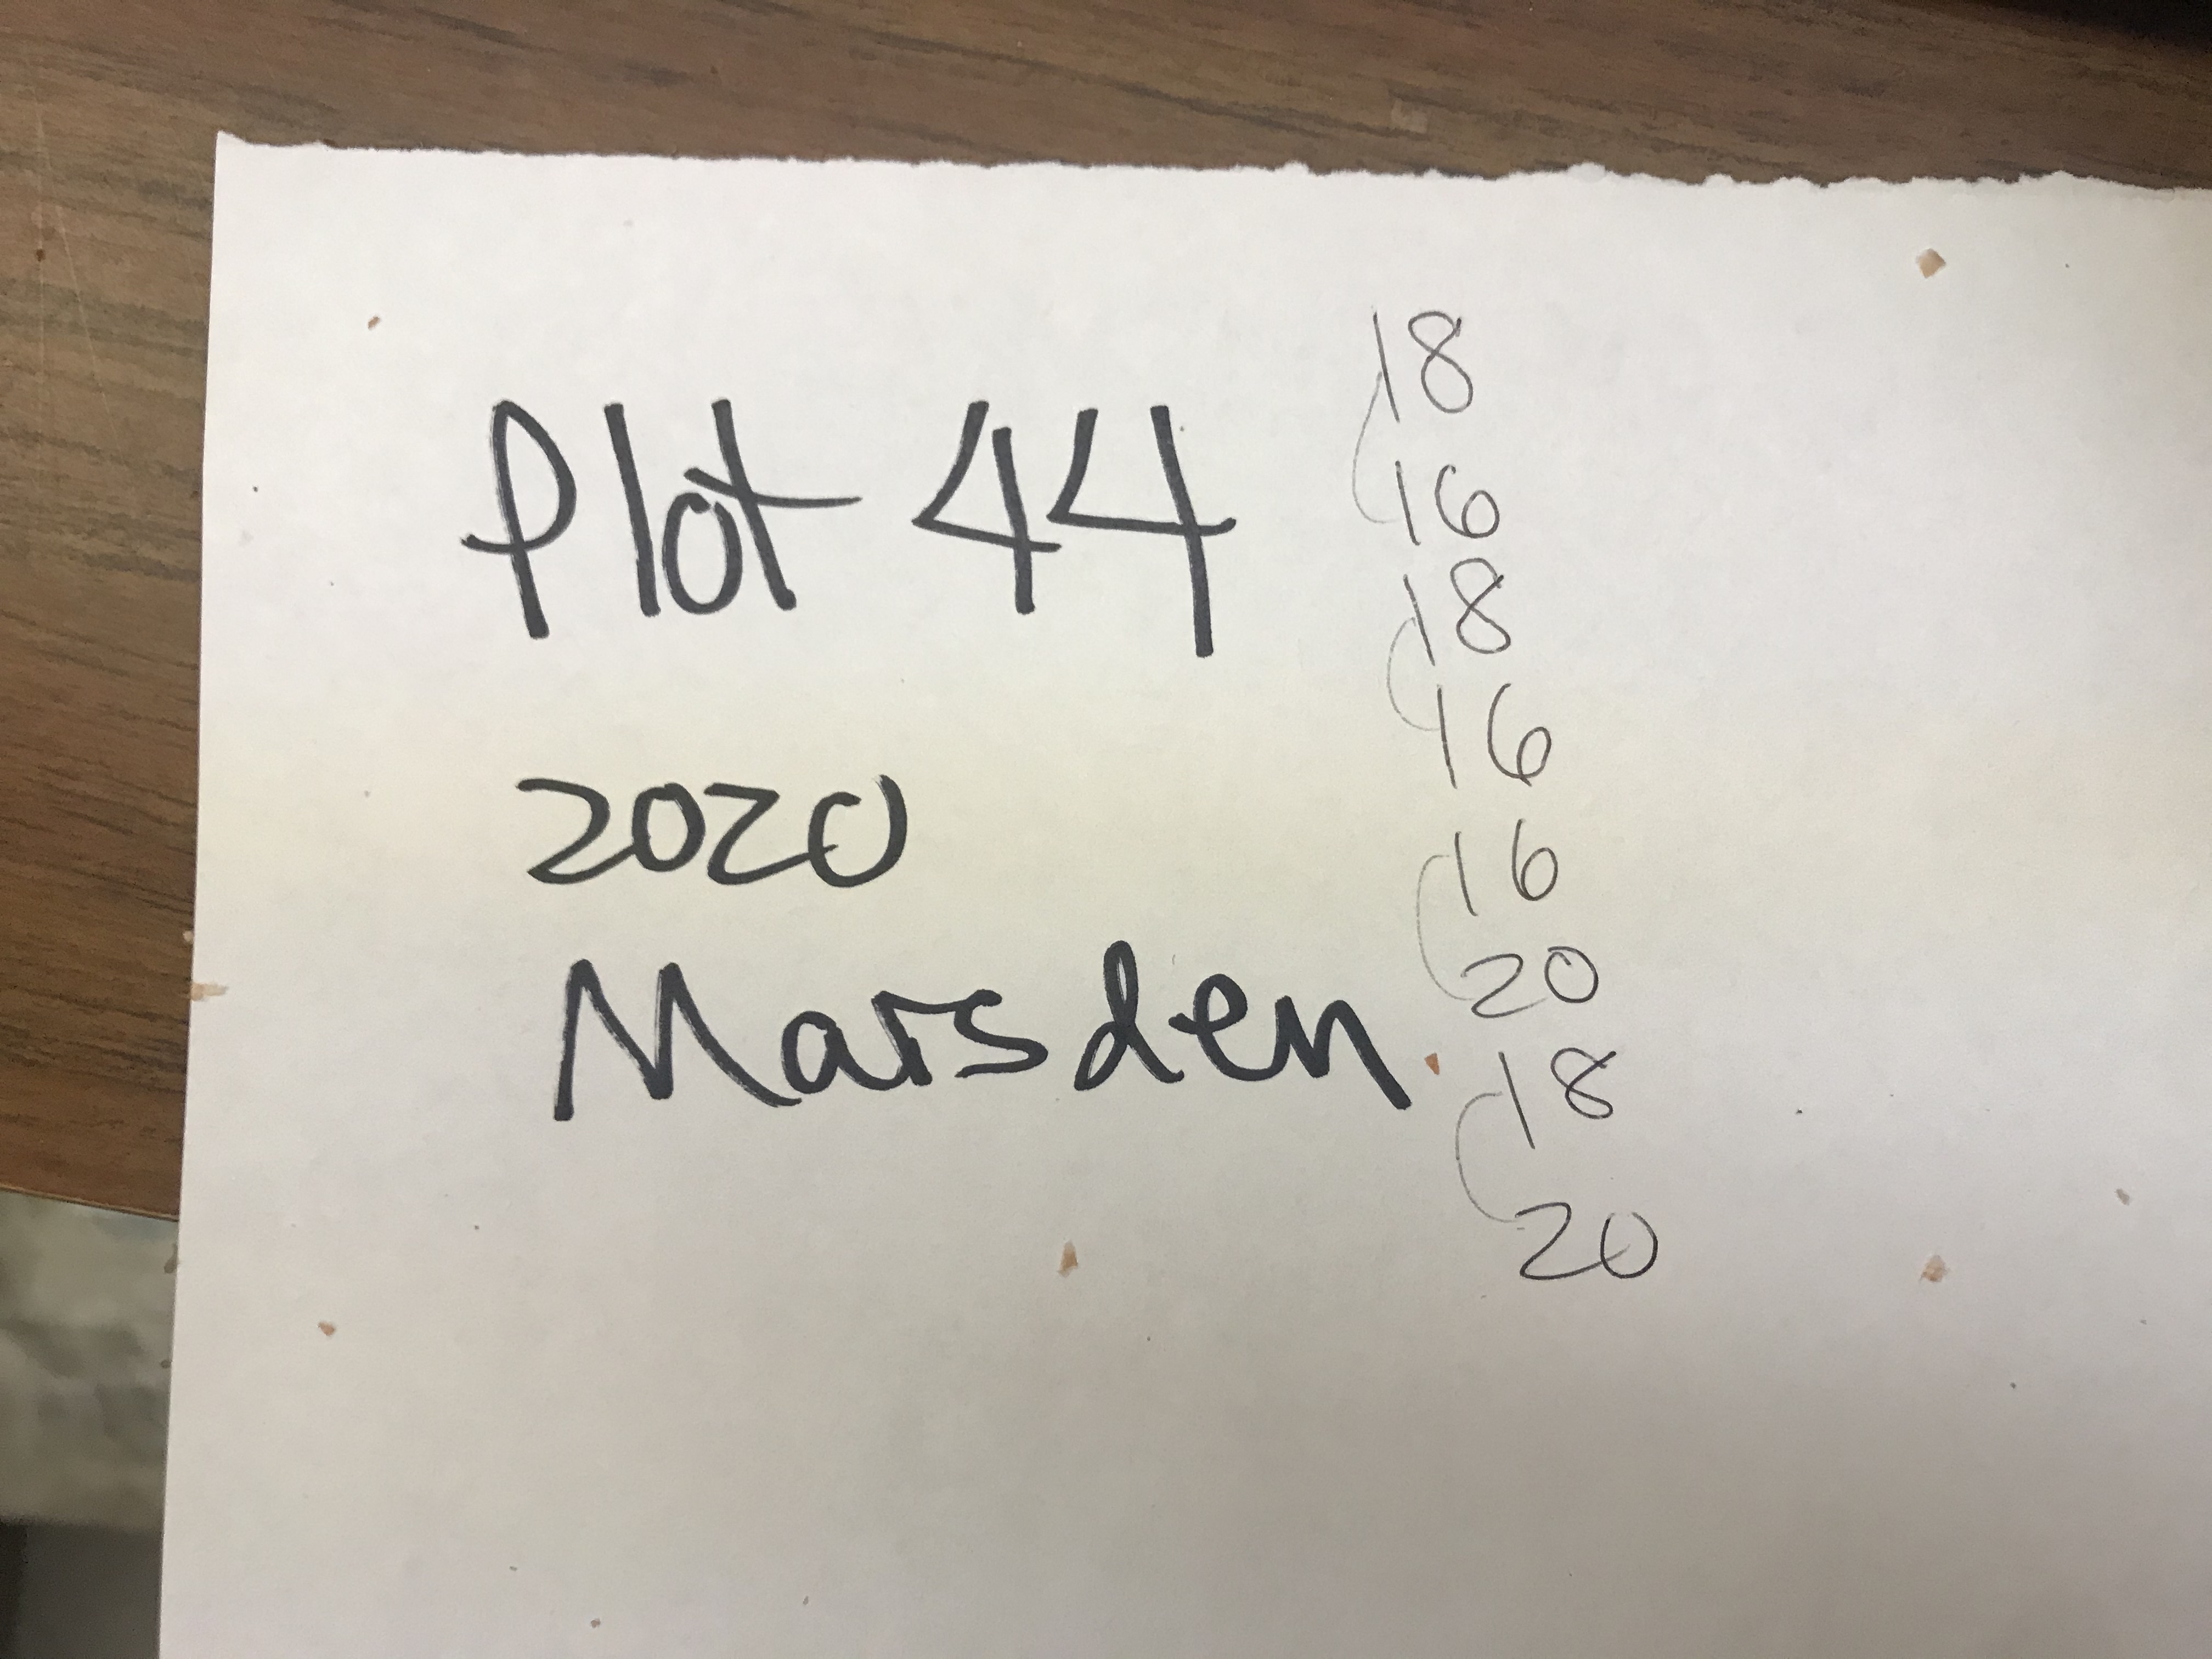 Plot 44
2020
Marsden
18
16
18
16
16
20
18
20